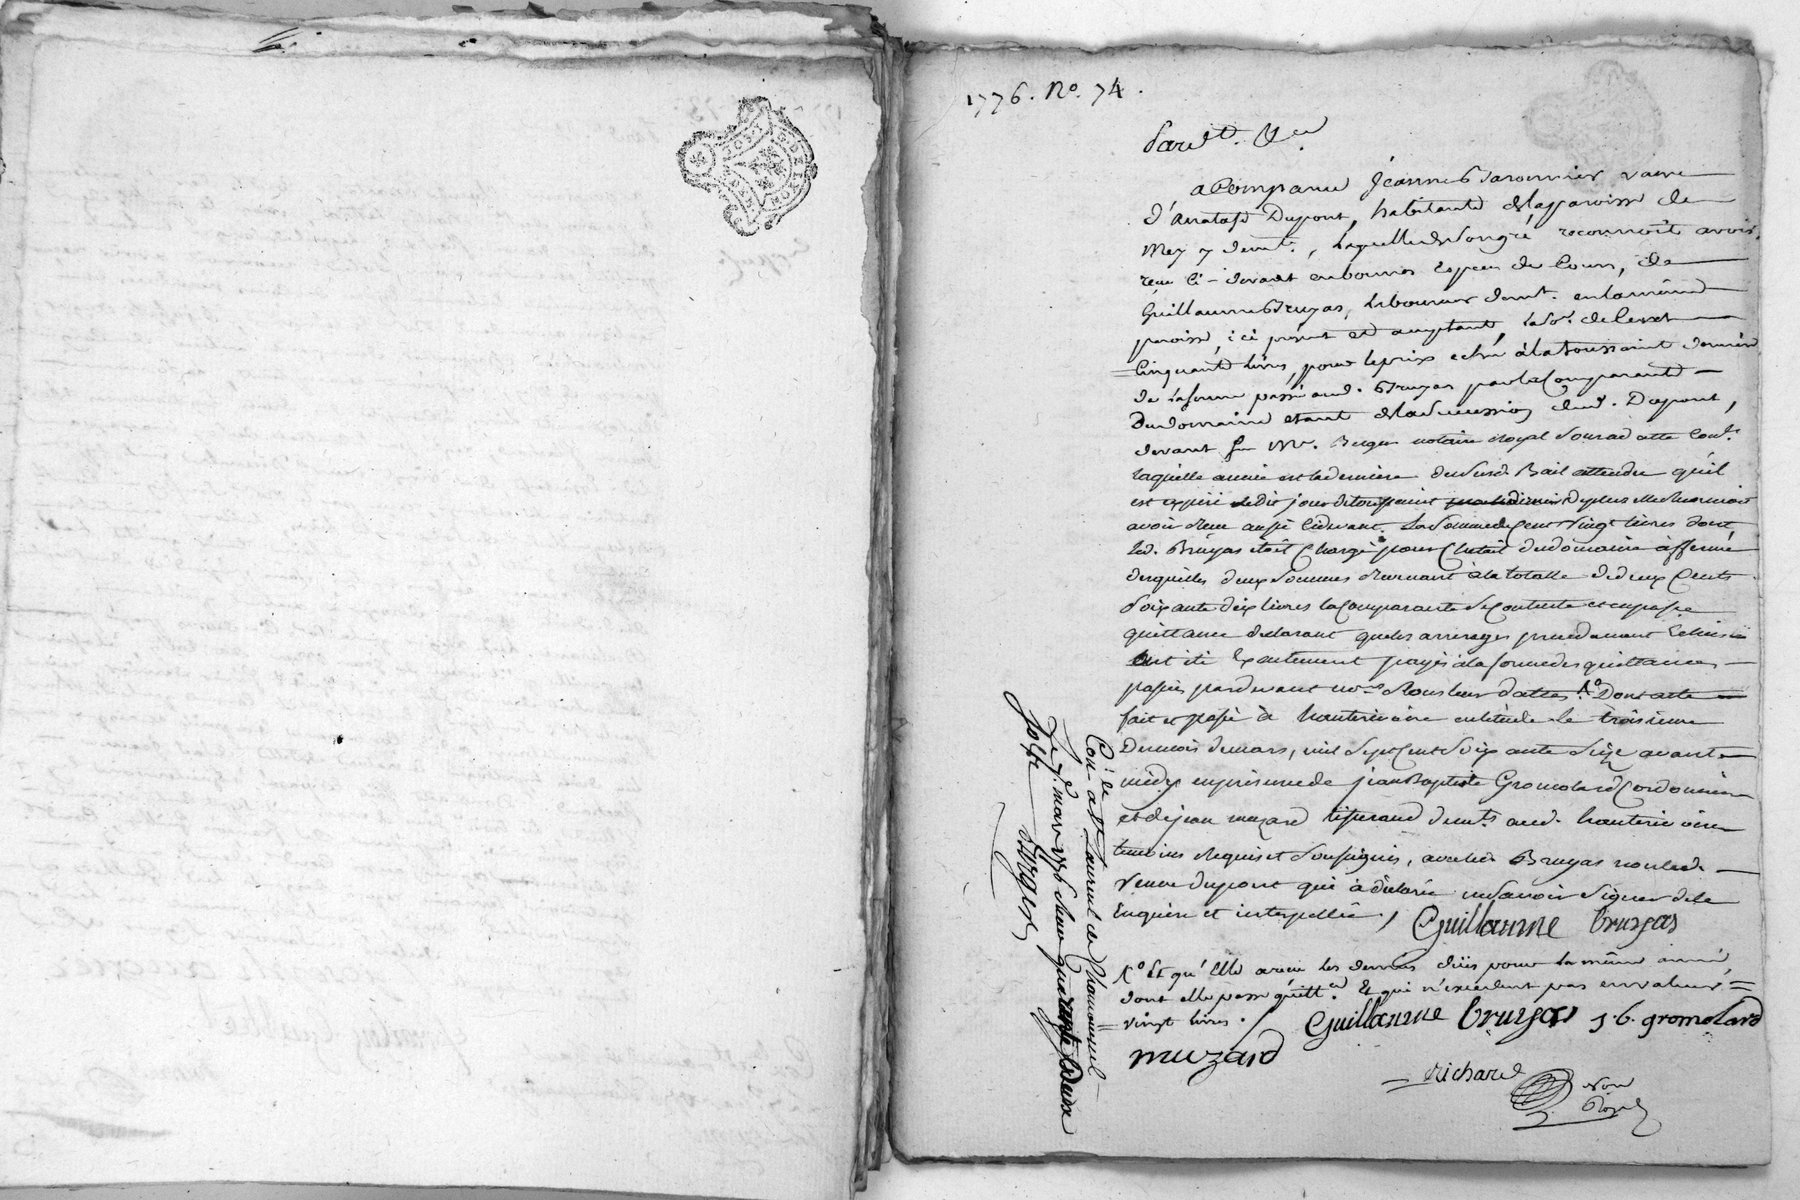 1776. No. 74.
Pardt. &ca
a Comparue Jeanne Baronnier veuve
d'Anatase Dupont, habitante de la paroisse de
Mey y demt., laquelle de son gré reconnoit avoir
reçu ci-devant en bonnes especes de Cours, de
Guillaume Bruyas, laboureur demt. en la même
paroisse, ici present et acceptant, la so. de Cent
Cinquante livres, pour le prix echu à la toussaint derniere
de la ferme passé aud. Bruyas par la Comparante
du domaine etant de la succession dud. Dupont,
devant feu Me. Berger notaire royal sous sad. datte Conle.
laquelle année est la derniere dud. Bail attendu qu'il
est expiré ledit jour de toussaint de plus elle reconnoit
avoir reçu aussi cidevant la somme de Cent vingt livres dont
led. Bruyas etoit Chargé pour Chetail du domaine affermé
desquelles deux sommes revenant à la totalle de deux Cents
soixante dix livres la Comparante se Contente et en passe
quittance declarant que les arrerages precedament échus
ont été exactement payés à la forme des quittances
passées pardevant nore. sous leur dattes. Ao Dont acte
fait et passé à hauterivoire en l'étude le troisieme
Du mois de mars, mil sept Cent soixante seize avant
midy en presence de jean Baptiste Gromolard Cordonnier
et de jean muzard tisserand demts. aud. hauterivoire
temoins requis et soussignés, avec led. Bruyas non lad.
veuve dupont qui à déclaré ne savoir signer de ce
Enquise et interpellée. / Guillaume bruyas
Ao Et qu'elle a reçu les denrées dües pour la même année
dont elle passe quittce. Et qui n'excedent pas en valeur
vingt livres. / Guillaume bruyas j. b. gromolard
muzard
richard
Nore
Royal
C.lé
Con. a St Laurent de Chamousset
Le 7e. mars 1776 Reçu quarante deux
sols
Berger